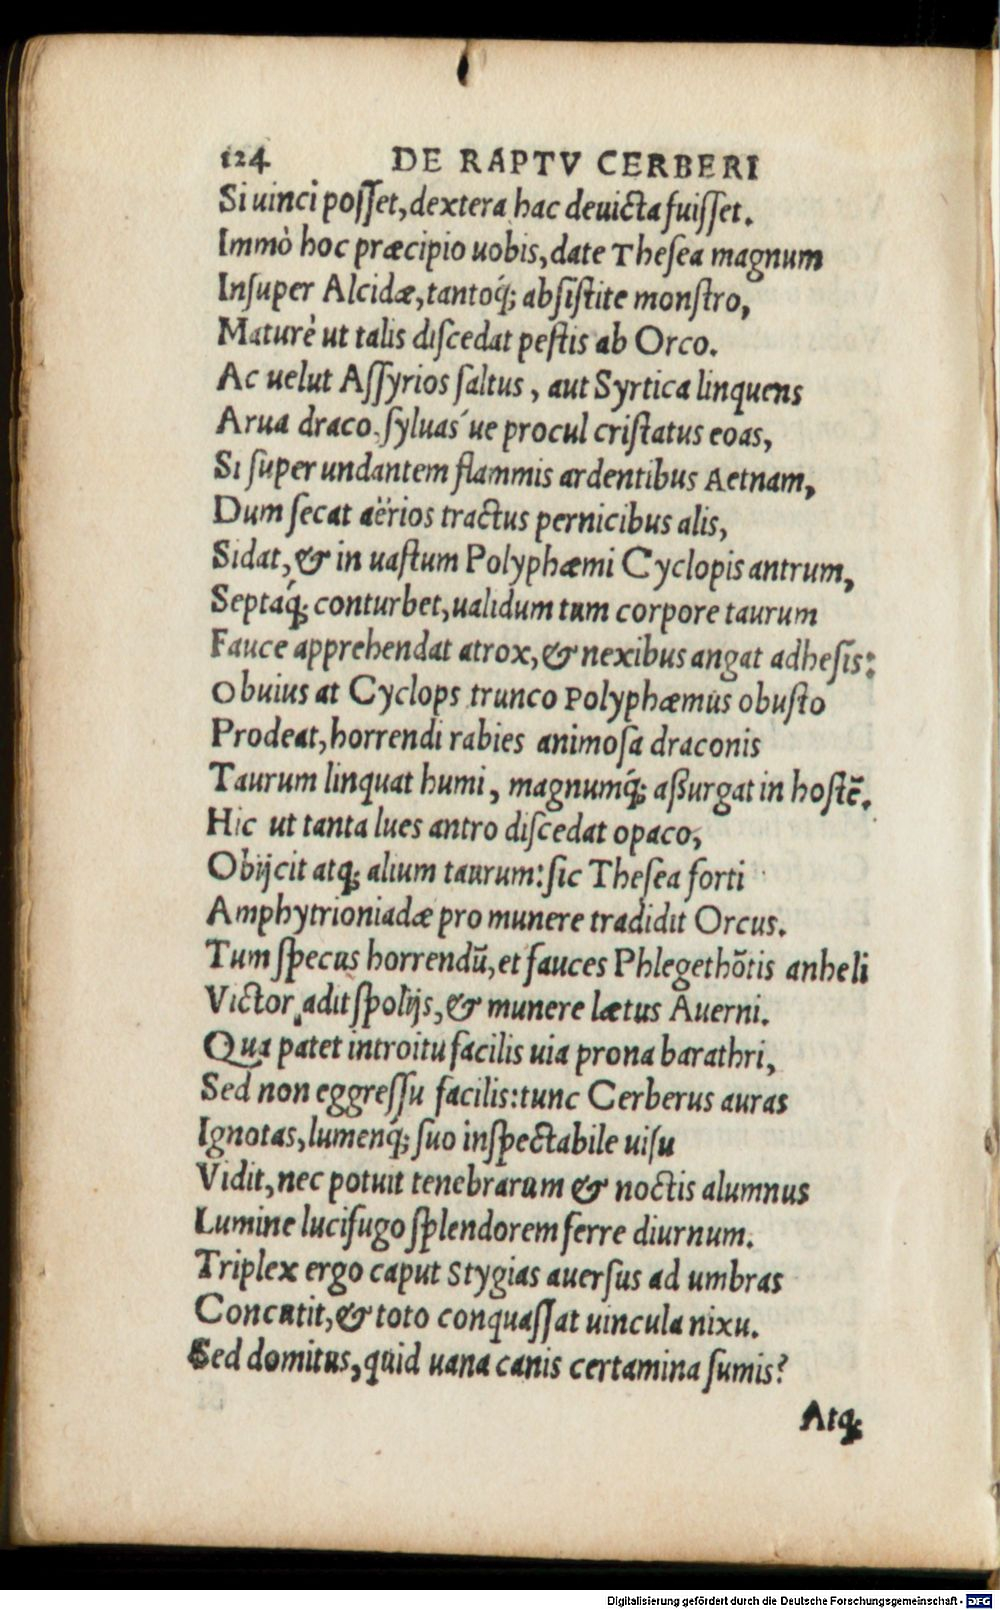 124 DE RAPTV CERBERI
Si uinci poſſet, dextera hac deuicta fuiſſet.
Immò hoc præcipio uobis, date Theſea magnum
Inſuper Alcidæ, tantoq́; abſiſtite monſtro,
Maturè ut talis diſcedat peſtis ab Orco.
Ac uelut Aſſyrios ſaltus, aut Syrtica linquens
Arua draco, ſyluas´ue procul criſtatus eoas,
Si ſuper undantem flammis ardentibus Aetnam,
Dum ſecat aërios tractus pernicibus alis,
Sidat, & in uaſtum Polyphæmi Cyclopis antrum,
Septaq́; conturbet, ualidum tum corpore taurum
Fauce apprehendat atrox, & nexibus angat adheſis:
Obuius at Cyclops trunco Polyphæmus obuſto
Prodeat, horrendi rabies animoſa draconis
Taurum linquat humi, magnumq́; aßurgat in hoſtē.
Hic ut tanta lues antro diſcedat opaco,
Obijcit atq; alium taurum: ſic Theſea forti
Amphytrioniadæ pro munere tradidit Orcus.
Tum ſpecus horrendū, et fauces Phlegethōtis anheli
Victor adit ſpolijs, & munere lætus Auerni.
Qua patet introitu facilis uia prona barathri,
Sed non eggreſſu facilis: tunc Cerberus auras
Ignotas, lumenq́; ſuo inſpectabile uiſu
Vidit, nec potuit tenebrarum & noctis alumnus
Lumine lucifugo ſplendorem ferre diurnum.
Triplex ergo caput Stygias auerſus ad umbras
Concutit, & toto conquaſſat uincula nixu.
Sed domitus, quid uana canis certamina ſumis?
Atq;
Digitalisierung gefördert durch die Deutsche Forschungsgemeinschaft - DFG